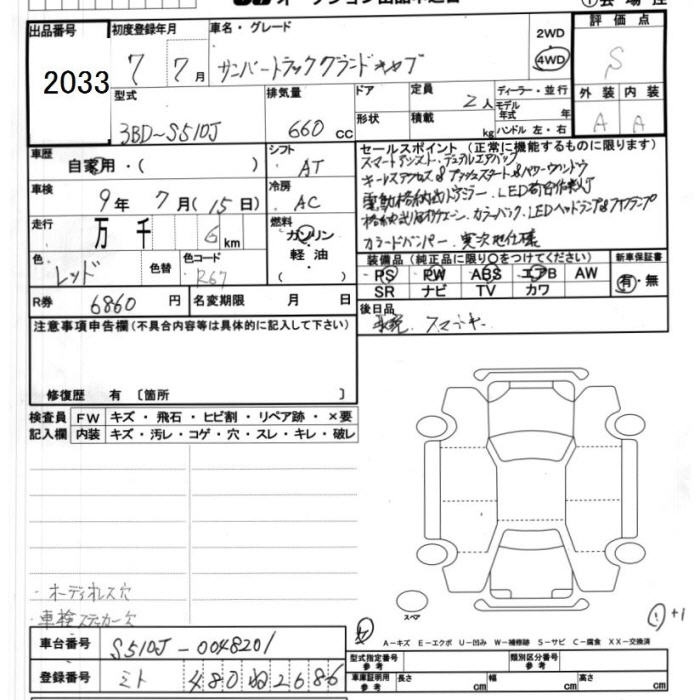 オークション出品申込書
出品番号 2033
初度登録年月 7 7月
車名・グレード サンバートラックグランドキャブ
2WD
4WD
評価点 S
型式 3BD-S510J
排気量 660 cc
ドア
形状
定員 2人
積載 kg
ディーラー・並行
モデル年式 年
ハンドル 左・右
外装 A
内装 A
車歴 自家用・( )
シフト AT
車検 9年 7月(15日)
冷房 AC
走行 万 千 6 km
燃料 ガソリン・軽油・( )
色 レッド
色替
色コード R67
R券 6860 円
名変期限 月 日
セールスポイント(正常に機能するものに限ります)
スマートアシスト・デュアルエアバッグ
キーレスアクセス&プッシュスタート&パワーウィンドウ
電動格納式ドアミラー・LED荷台作業灯
カラーパック・LEDヘッドランプ&フォグランプ
カラードバンパー
装備品(純正品に限り○をつけてください)
PS PW ABS エアB AW
SR ナビ TV カワ
新車保証書 有・無
後日品
注意事項申告欄(不具合内容等は具体的に記入して下さい)
修復歴 有〔箇所 〕
検査員記入欄
FW キズ・飛石・ヒビ割・リペア跡・×要
内装 キズ・汚レ・コゲ・穴・スレ・キレ・破レ
・オーディオレス穴
・車検ステッカー欠
スペア
+1
A-キズ E-エクボ U-凹み W-補修跡 S-サビ C-腐食 XX-交換済
車台番号 S510J-0048201
登録番号 ミト 480 ね 2686
型式指定番号 参考
類別区分番号 参考
車庫証明用 参考
長さ cm
幅 cm
高さ cm